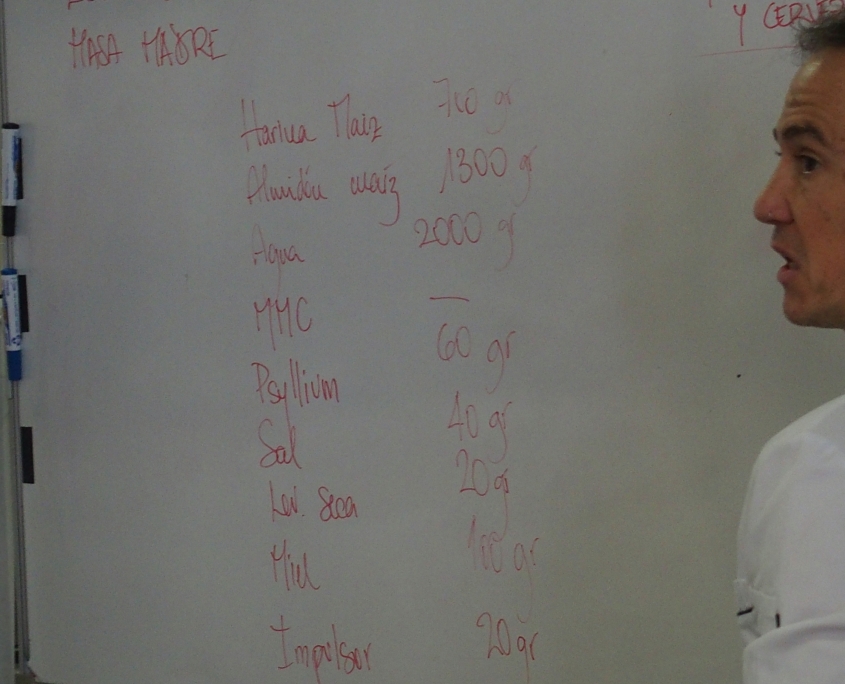 Y CERVE
MASA MADRE
Harina Maiz 740 gr
Almidón maíz 1300 gr
Agua 2000 gr
MMC —
Psyllium 60 gr
Sal 40 gr
Lev. Seca 20 gr
Miel 100 gr
Impulsor 20 gr